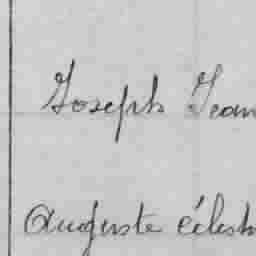 Joseph Jean
Auguste célest